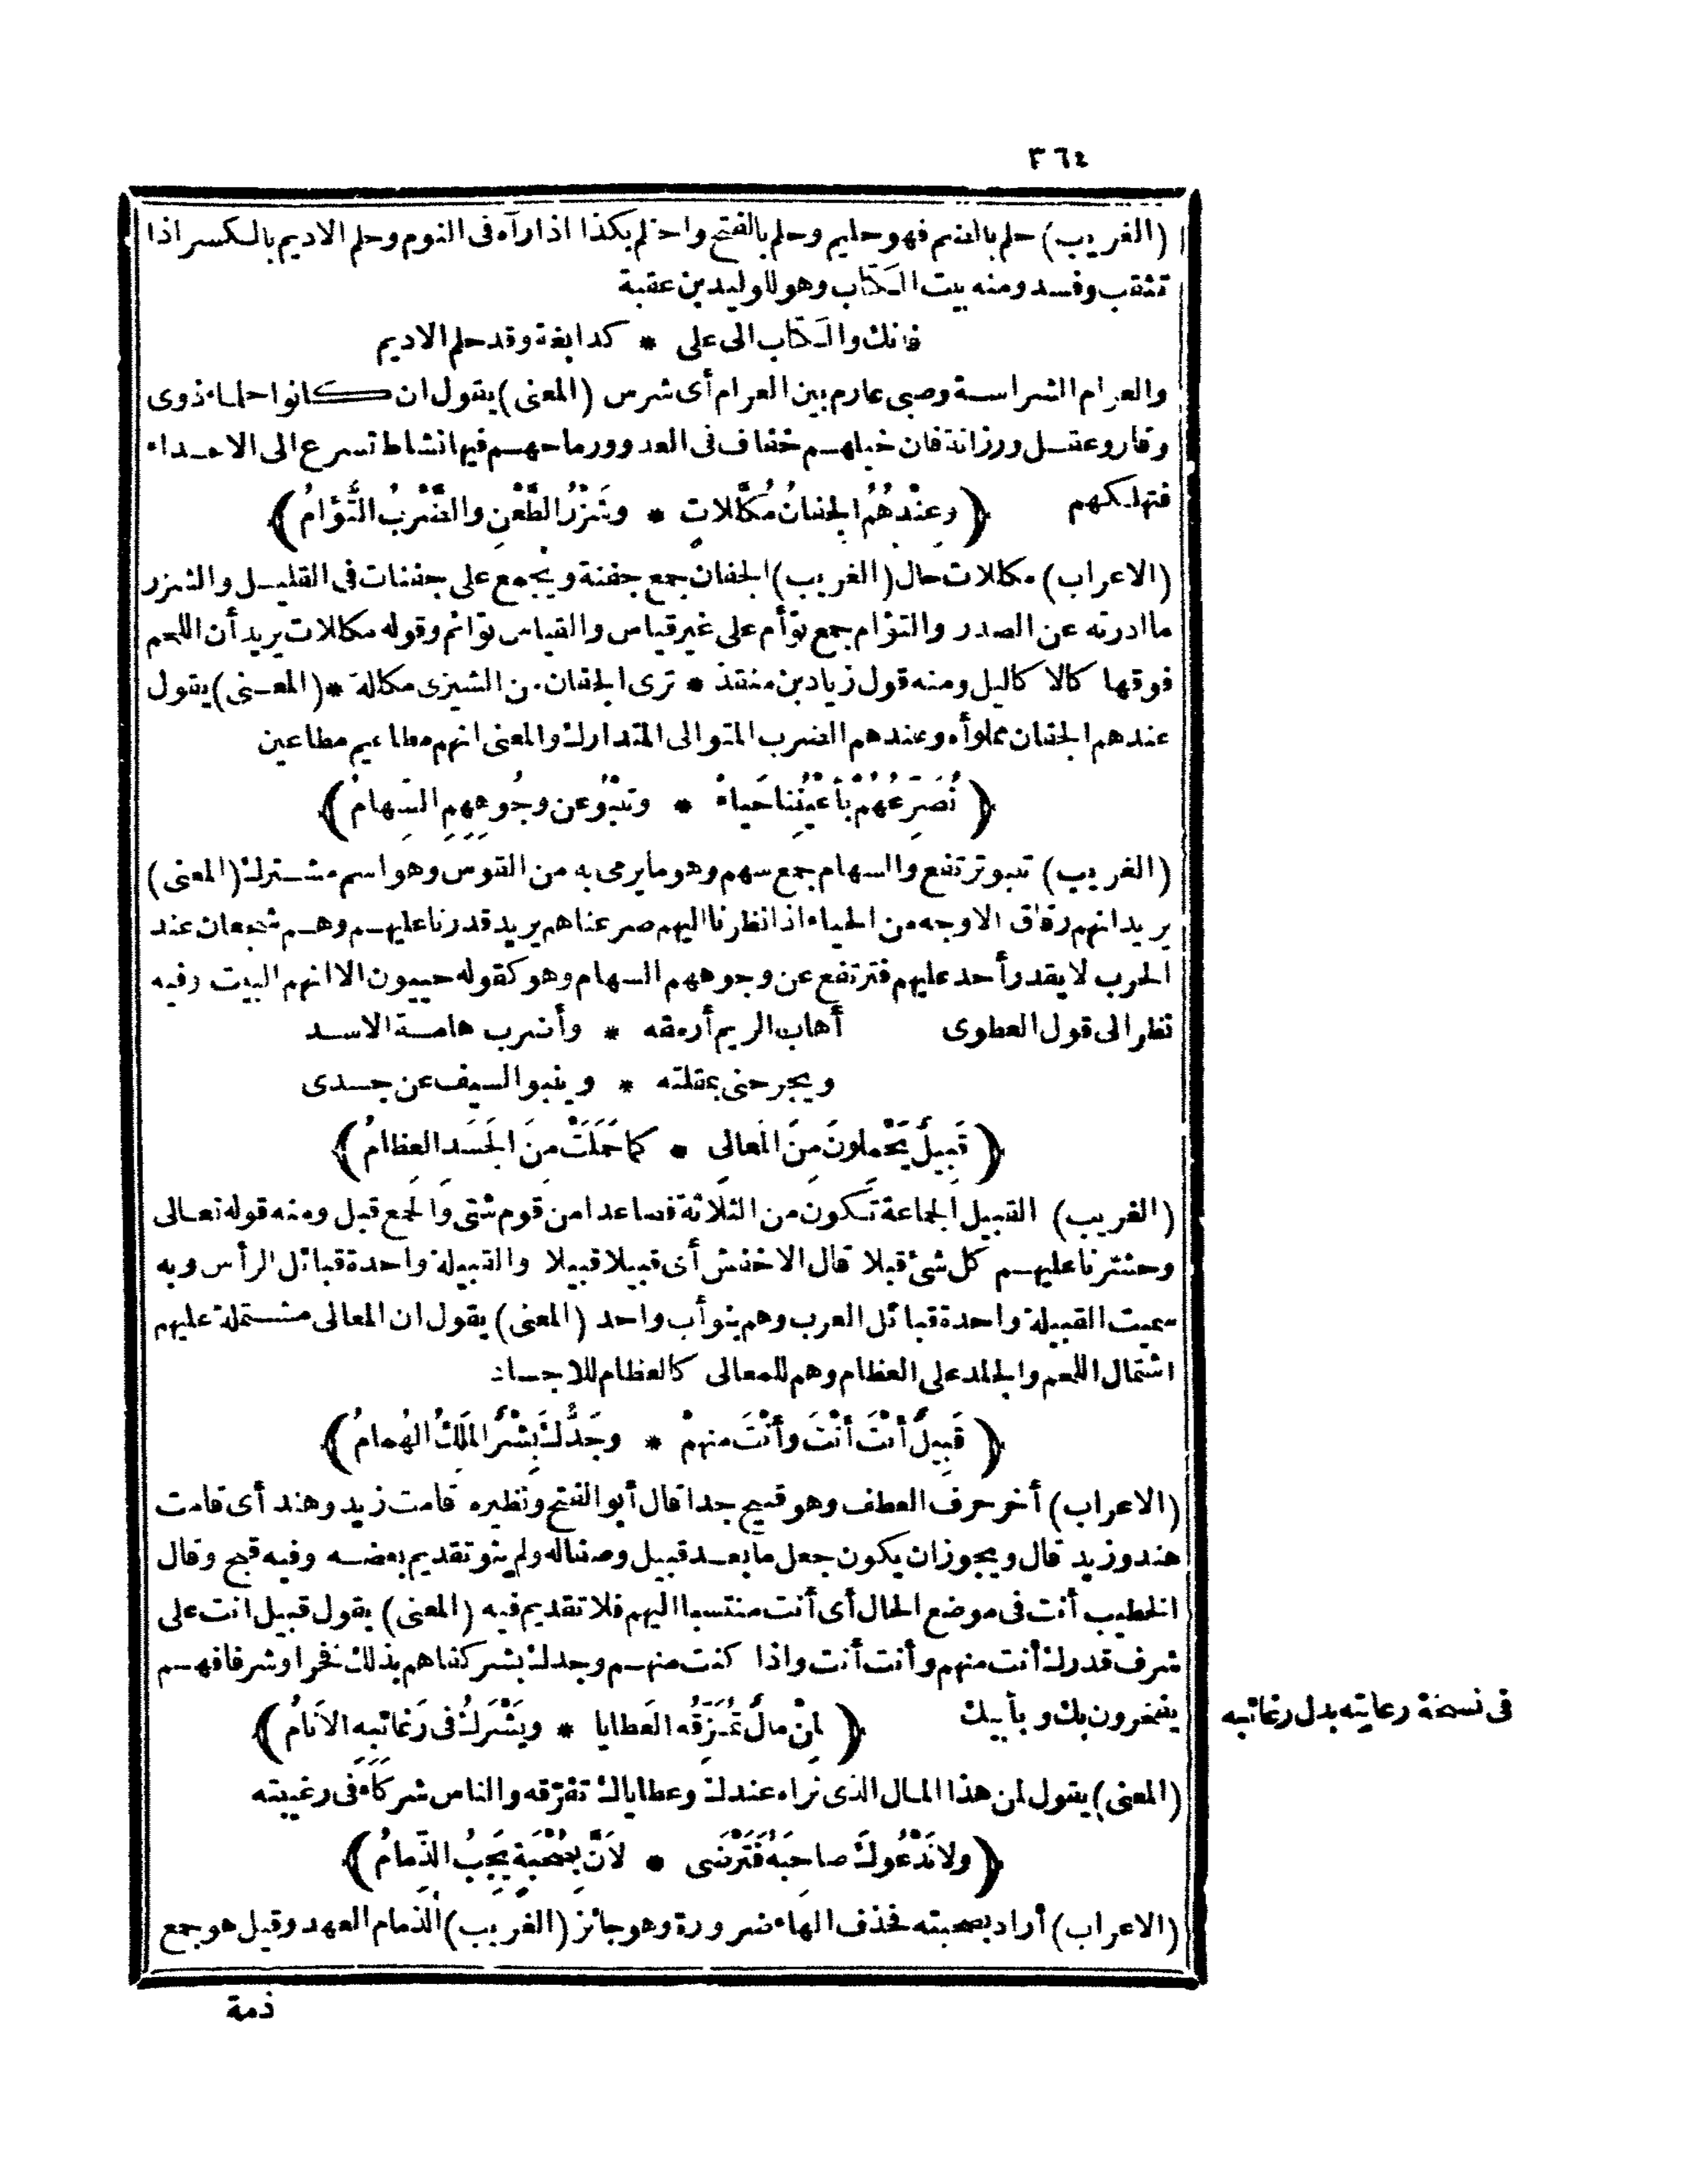 ٣٦٤
(الغريب) حلم بالضم فهو حليم وحلم بالفتح واحتلم بكذا اذا رآه فى النوم وحلم الاديم بالكسر اذا
تثقب وفسد ومنه بيت الكتاب وهو للوليد بن عقبة
فانك والكتاب الى على * كدابغة وقد حلم الاديم
والعرام الشراسة وصبى عارم بين العرام أى شرس (المعنى) يقول ان كانوا حلماء ذوى
وقار وعقل ورزانة فان خيلهم خفاف فى العدو ورماحهم فيها نشاط تسرع الى الاعداء
فتهلكهم (وعِنْدَهُمُ الجِفانُ مُكَلَّلاتٍ * وشَزْرُ الطَّعْنِ والضَّرْبُ التُّؤامُ)
(الاعراب) مكللات حال (الغريب) الجفان جمع جفنة ويجمع على جفنات فى القليل والشزر
ما ادرته عن الصدر والتؤام جمع توأم على غير قياس والقياس توائم وقوله مكللات يريد أن اللحم
فوقها كالاكاليل ومنه قول زياد بن منقذ * ترى الجفان من الشيزى مكللة * (المعنى) يقول
عندهم الجفان مملوأه وعندهم الضرب المتوالى المتدارك والمعنى انهم مطاعيم مطاعين
(نُصَرِّعُهُمْ بِأَعْيُنِنا حَياءً * وتَنْبُو عن وجُوهِهِمِ السِّهامُ)
(الغريب) تنبو ترتفع والسهام جمع سهم وهو ما يرمى به من القوس وهو اسم مشترك (المعنى)
يريد انهم رقاق الاوجه من الحياء اذا نظرنا اليهم صرعناهم يريد قدرنا عليهم وهم شجعان عند
الحرب لا يقدر أحد عليهم فترتفع عن وجوههم السهام وهو كقوله حييون الا انهم البيت وفيه
نظر الى قول العطوى أهاب الريم أرمقه * وأضرب هامة الاسد
ويجرحنى بمقلته * وينبو السيف عن جسدى
(قَبِيلٌ يَحْمِلونَ مِنَ المَعالِى * كما حَمَلَتْ مِنَ الجَسَدِ العِظامُ)
(الغريب) القبيل الجماعة تكون من الثلاثة فصاعدا من قوم شتى والجمع قبل ومنه قوله تعالى
وحشرنا عليهم كل شئ قبلا قال الاخفش أى قبيلا قبيلا والقبيلة واحدة قبائل الرأس وبه
سميت القبيلة واحدة قبائل العرب وهم بنو أب واحد (المعنى) يقول ان المعالى مشتملة عليهم
اشتمال اللحم والجلد على العظام وهم للمعالى كالعظام للاجساد
(قَبِيلٌ أَنْتَ أَنْتَ وأَنْتَ منهمْ * وجَدُّكَ بِشْرٌ المَلِكُ الهُمامُ)
(الاعراب) أخر حرف العطف وهو قبيح جدا قال أبو الفتح ونظيره قامت زيد وهند أى قامت
هند وزيد قال ويجوز ان يكون جعل ما بعد قبيل وصفا له ولم ينو تقديم بعضه وفيه قبح وقال
الخطيب أنت فى موضع الحال أى أنت منتسبا اليهم فلا تقديم فيه (المعنى) يقول قبيل انت على
شرف قدرك أنت منهم وأنت أنت واذا كنت منهم وجدك بشر كفاهم بذلك فخرا وشرفا فهم
يفخرون بك وبأبيك (لِمَنْ مالٌ تُمَزِّقُه العَطايا * ويَشْرَكُ فى رَغائِبِهِ الاَنامُ)
فى نسخة رعايته بدل رغائبه
(المعنى) يقول لمن هذا المال الذى نراه عندك وعطاياك تفرّقه والناس شركاء فى رغيبته
(ولا نَدْعُوكَ صاحِبَهُ فَتَرْضَى * لاَنَّ بِصُحْبَةٍ يَجِبُ الذِّمامُ)
(الاعراب) أراد بصحبته فحذف الهاء ضرورة وهو جائز (الغريب) الذمام العهد وقيل هو جمع
ذمة